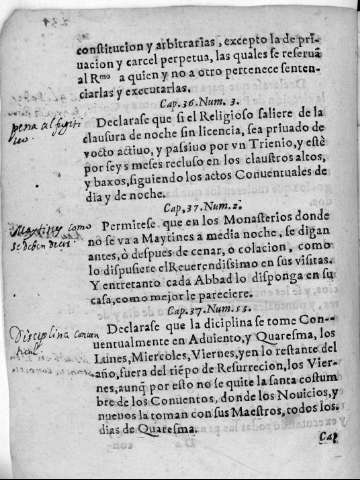 constitucion y arbitrarias, excepto la de pri-
uacion y carcel perpetua, las quales se reseruā
al Rmo a quien y no a otro pertenece senten-
ciarlas y executarlas.
Cap.36.Num.3.
pena al fugiti
uo
Declarase que si el Religioso saliere de la
clausura de noche sin licencia, sea priuado de
vocto actiuo, y passiuo por vn Trienio, y estè
por seys meses recluso en los claustros altos,
y baxos, siguiendo los actos Conuentuales de
dia y de noche.
Cap,37.Num.2.
Maytines como
se deben decir
Permitese que en los Monasterios donde
no se va a Maytines a media noche, se digan
antes, ò despues de cenar, o colacion, como
lo dispusiere el Reuerendissimo en sus visitas.
Y entretanto cada Abbad lo disponga en su
casa, como mejor le pareciere.
Cap.37.Num.13.
Disciplina conun
tual.
Declarase que la diciplina se tome Con-
uentualmente en Aduiento, y Quaresma, los
Lunes, Miercoles, Viernes, y en lo restante del
año, fuera del tiēpo de Resurrecion, los Vier-
nes, aunq̄ por esto no se quite la santa costum
bre de los Conuentos, donde los Nouicios, y
nueuos la toman con sus Maestros, todos los
dias de Quaresma.
Cap